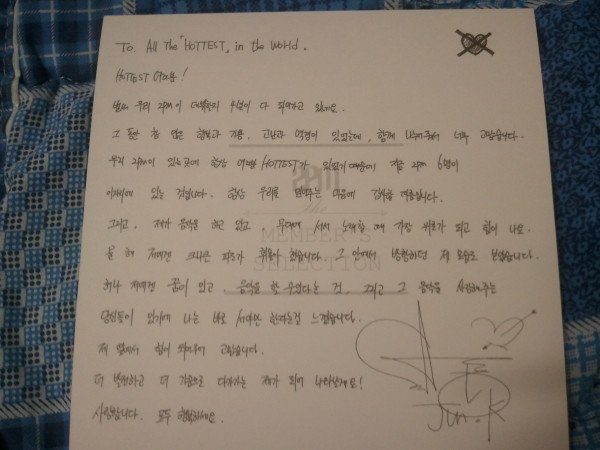 To. All the "HOTTEST" in the World.
HOTTEST 여러분!
벌써 우리 2PM이 데뷔한지 4년이 다 되어가고 있네요.
그 동안 참 많은 행복과 기쁨, 고난과 역경이 있었는데, 함께 나눠주셔서 너무 고맙습니다.
우리 2PM이 있는곳에 항상 여러분 HOTTEST가 있었기 때문에 지금 2PM 6명이
이자리에 있는 것입니다. 항상 우리를 믿어주는 마음에 감사할 따름입니다.
그리고, 제가 음악을 하고 있고, 무대에 서서 노래할 때 가장 위로가 되고 힘이 나요.
올 해 저에겐 크나큰 파도가 휘몰아 쳤습니다. 그 안에서 방황하던 제 모습도 보였습니다.
허나 저에겐 꿈이 있고, 음악을 할 수 있다는 것, 그리고 그 음악을 사랑해주는
당신들이 있기에 나는 바로 서야만 한다는것 느꼈습니다.
제 옆에서 힘이 되어주어 고맙습니다.
더 발전하고 더 가슴으로 다가가는 제가 되어 나타날게요!
사랑합니다. 모두 행복하세요.
Jun. K
2PM
the
MEMBER'S
SELECTION